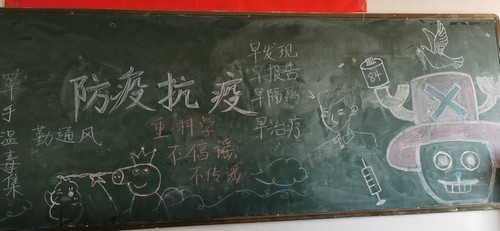 防疫抗疫
早发现
早报告
早隔离
早治疗
重科学
不信谣
不传谣
勤通风
手
温
毒
集
24